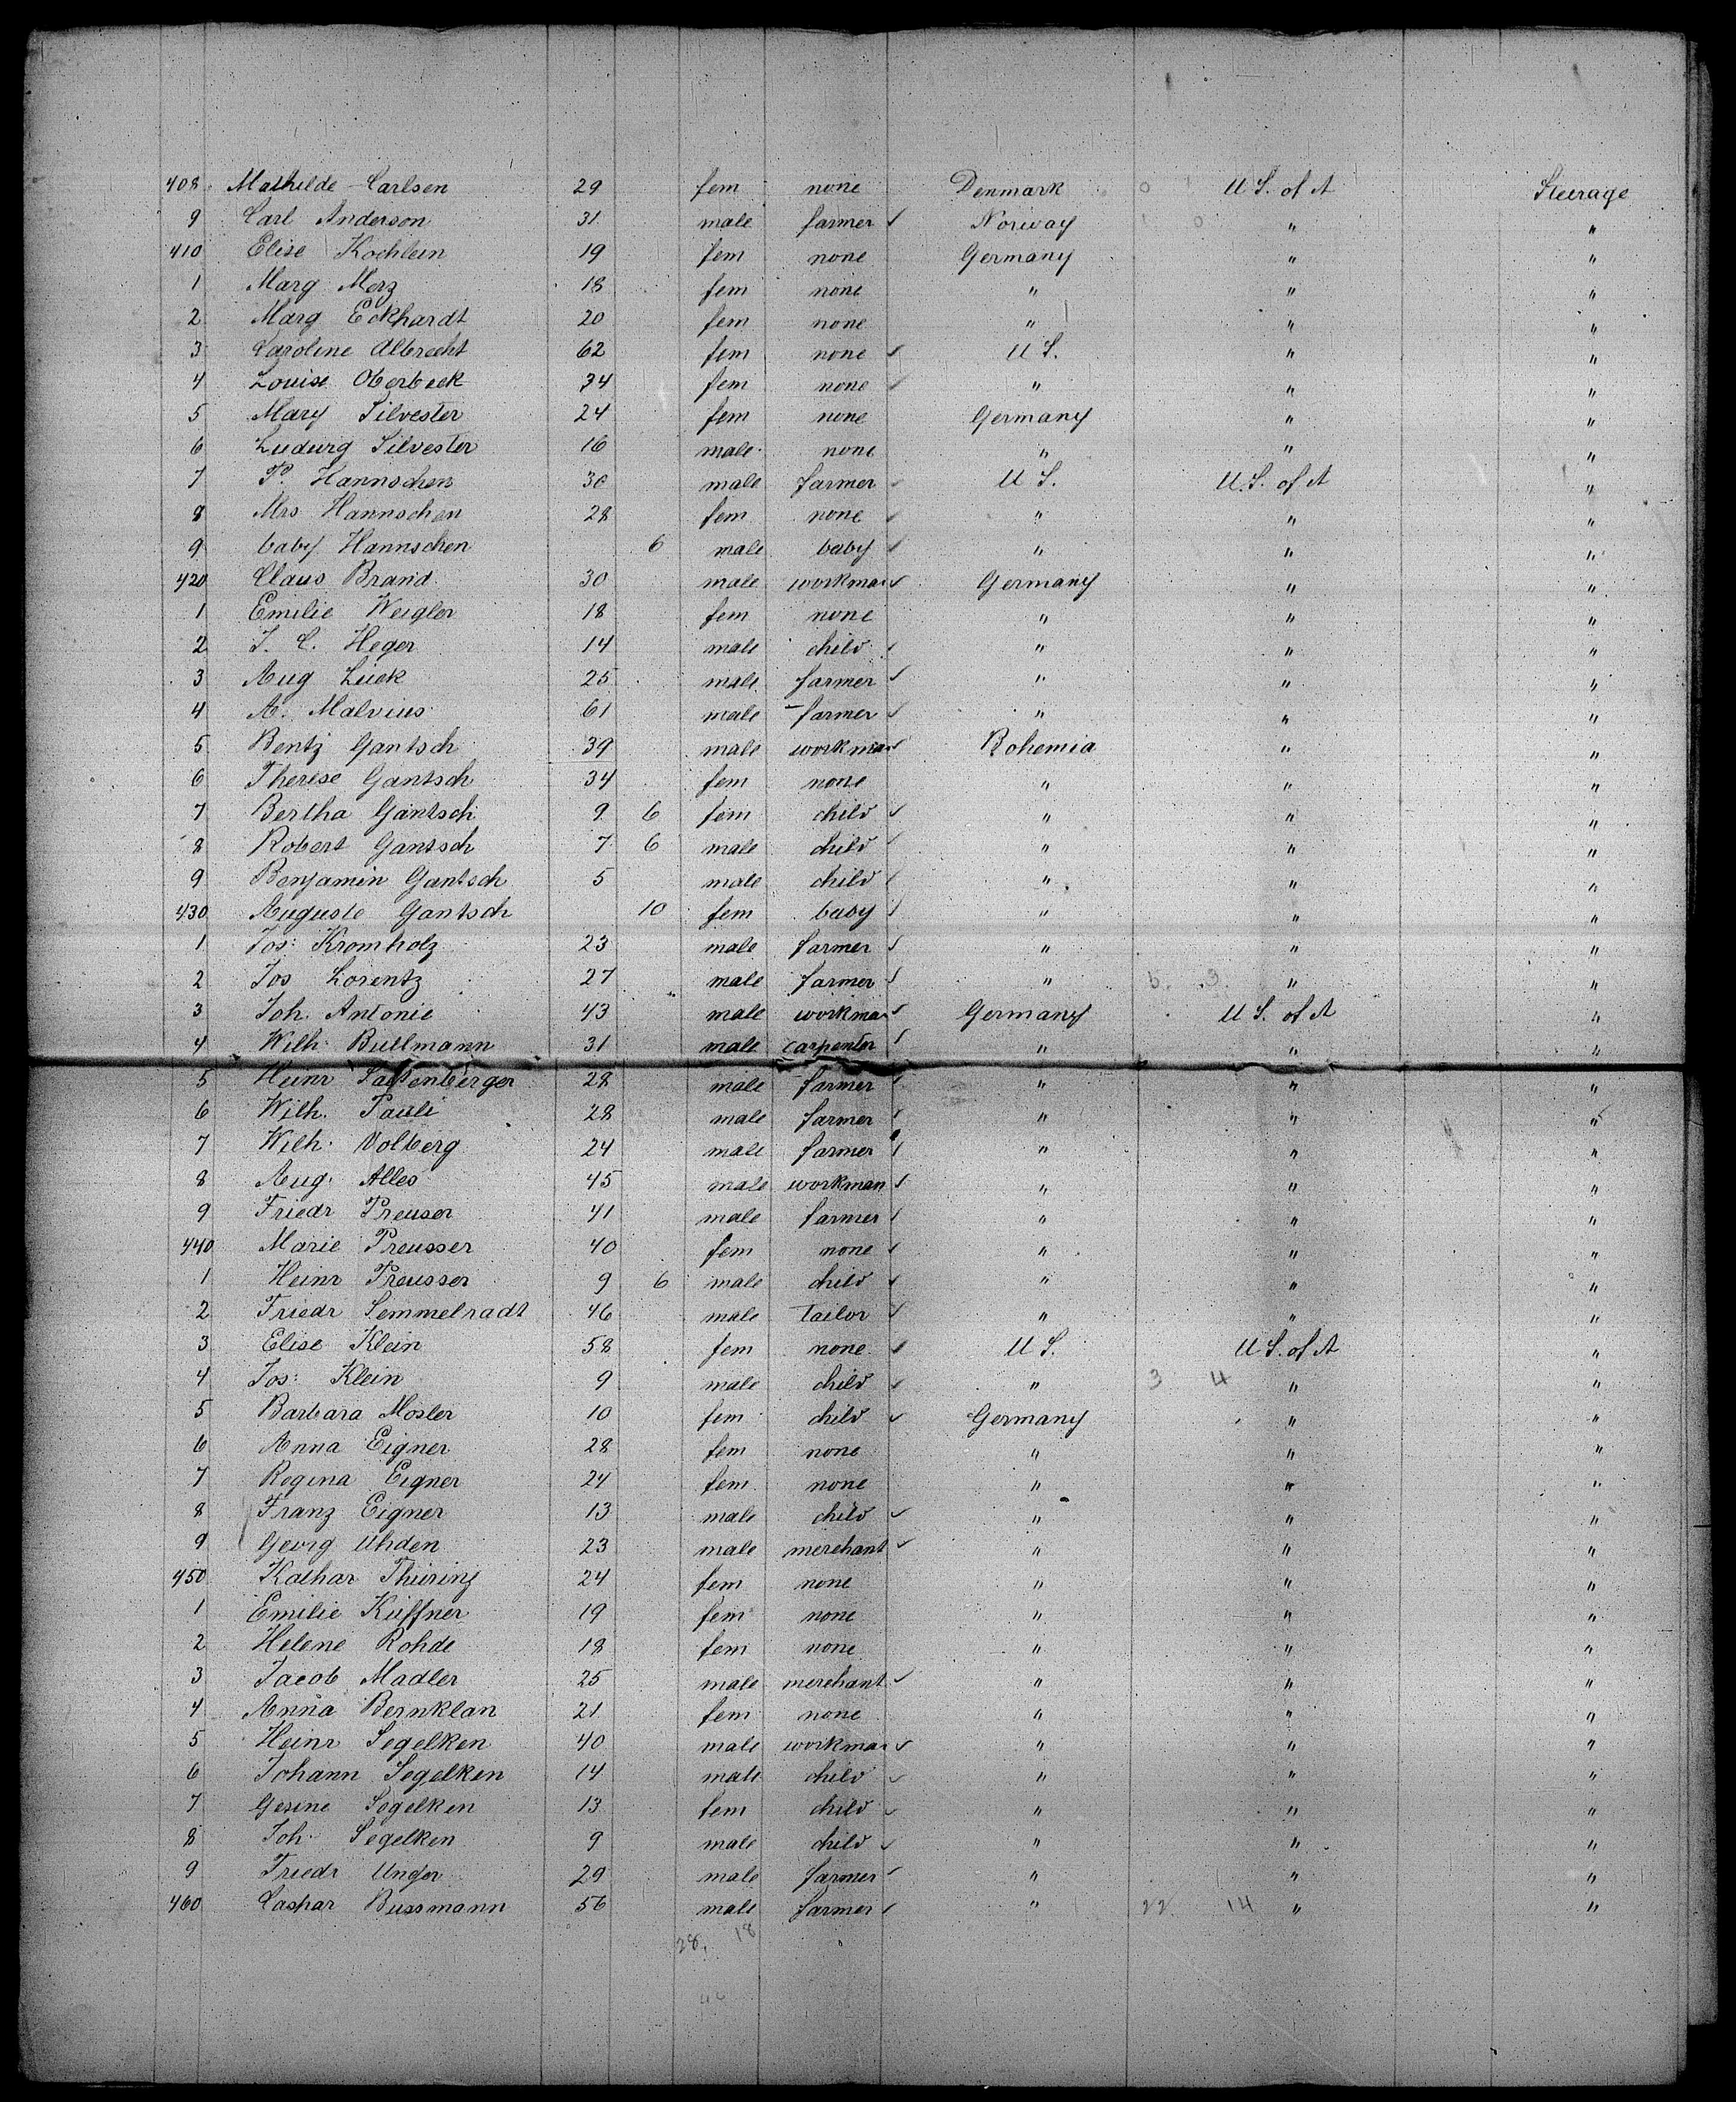 408 Mathilde Carlsen 29 fem none Denmark 0 U S. of A Steerage
9 Carl Anderson 31 male farmer ✓ Norway 1 0 " "
410 Elise Kochlein 19 fem none Germany " "
1 Marg Merz 18 fem none " " "
2 Marg Eckhardt 20 fem none " " "
3 Caroline Albrecht 62 fem none ✓ U S. " "
4 Louise Oberbeck 34 fem none ✓ " " "
5 Mary Silvester 24 fem none Germany " "
6 Ludwig Silvester 16 male none " " "
7 P. Hannschen 30 male farmer ✓ U S. U.S. of A "
8 Mrs Hannschen 28 fem none ✓ " " "
9 baby Hannschen 6 male baby ✓ " " "
420 Claus Brand 30 male workman ✓ Germany " "
1 Emilie Weigler 18 fem none " " "
2 J. C. Heger 14 male child ✓ " " "
3 Aug Lück 25 male farmer ✓ " " "
4 A. Malvius 61 male farmer ✓ " " "
5 Bentz Gantsch 39 male workman ✓ Bohemia " "
6 Therese Gantsch 34 fem none " " "
7 Bertha Gantsch 9 6 fem child ✓ " " "
8 Robert Gantsch 7 6 male child ✓ " " "
9 Benjamin Gantsch 5 male child ✓ " " "
430 Auguste Gantsch 10 fem baby ✓ " " "
1 Jos: Kromholz 23 male farmer ✓ " " "
2 Jos Lorentz 27 male farmer ✓ " 5. 3. " "
3 Joh. Antonie 43 male workman ✓ Germany U S. of A "
4 Wilh. Bullmann 31 male carpenter ✓ " " "
5 Heinr 28 male farmer ✓ " " "
6 Wilh. Pauli 28 male farmer ✓ " " "
7 Wilh. Volberg 24 male farmer ✓ " " "
8 Aug. Alles 45 male workman ✓ " " "
9 Friedr Preuser 41 male farmer ✓ " " "
440 Marie Preusser 40 fem none ✓ " " "
1 Heinr Preusser 9 6 male child ✓ " " "
2 Friedr Semmelradt 46 male Tailor ✓ " " "
3 Elise Klein 58 fem none ✓ U S. U.S. of A "
4 Jos: Klein 9 male child ✓ " 3 4 " "
5 Barbara Mosler 10 fem child ✓ Germany " "
6 Anna Eigner 28 fem none " " "
7 Regina Eigner 24 fem none " " "
8 Franz Eigner 13 male child ✓ " " "
9 Georg Uhden 23 male merchant ✓ " " "
450 Kathar Thuring 24 fem none " " "
1 Emilie Kuffner 19 fem none " " "
2 Helene Rohde 18 fem none " " "
3 Jacob Madler 25 male merchant ✓ " " "
4 Anna Bernklan 21 fem none " " "
5 Heinr Segelken 40 male workman ✓ " " "
6 Johann Segelken 14 male child ✓ " " "
7 Gesine Segelken 13 fem child ✓ " " "
8 Joh. Segelken 9 male child ✓ " " "
9 Friedr Unger 29 male farmer ✓ " " "
460 Caspar Bussmann 56 male farmer ✓ " 22 14 " "
28, 18